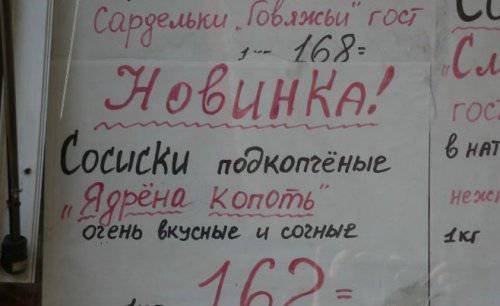 Сардельки „Говяжьи" гост
1--- 168=
Новинка!
Сосиски подкопчёные
„Ядрёна копоть"
очень вкусные и сочные
162=
гост
в нат
1кг